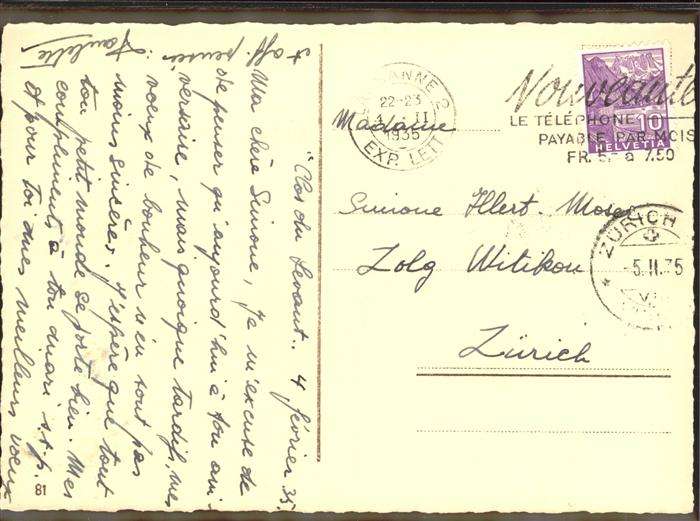 "Clos du Levant". 4 février 35.
Ma chère Simone, Je m'excuse de
ne penser qu'aujourd'hui à ton ani-
versaire, mais quoique tardifs, mes
voeux de bonheur n'en sont pas
moins sincères. J'espère que tout
ton petit monde se porte bien. Mes
compliments à ton mari s.t.p.
et pour toi mes meilleurs voeux
et aff. pensées:
Paulette
81
LAUSANNE 2
22-23
4. II
1935
EXP. LETT
Nouveauté
LE TÉLÉPHONE
PAYABLE PAR MOIS
FR. 5.- à 7.50
10
HELVETIA
Madame
Simone Illert-Moser
Zolg Witikon
Zürich
ZÜRICH
-5.II.35
VI